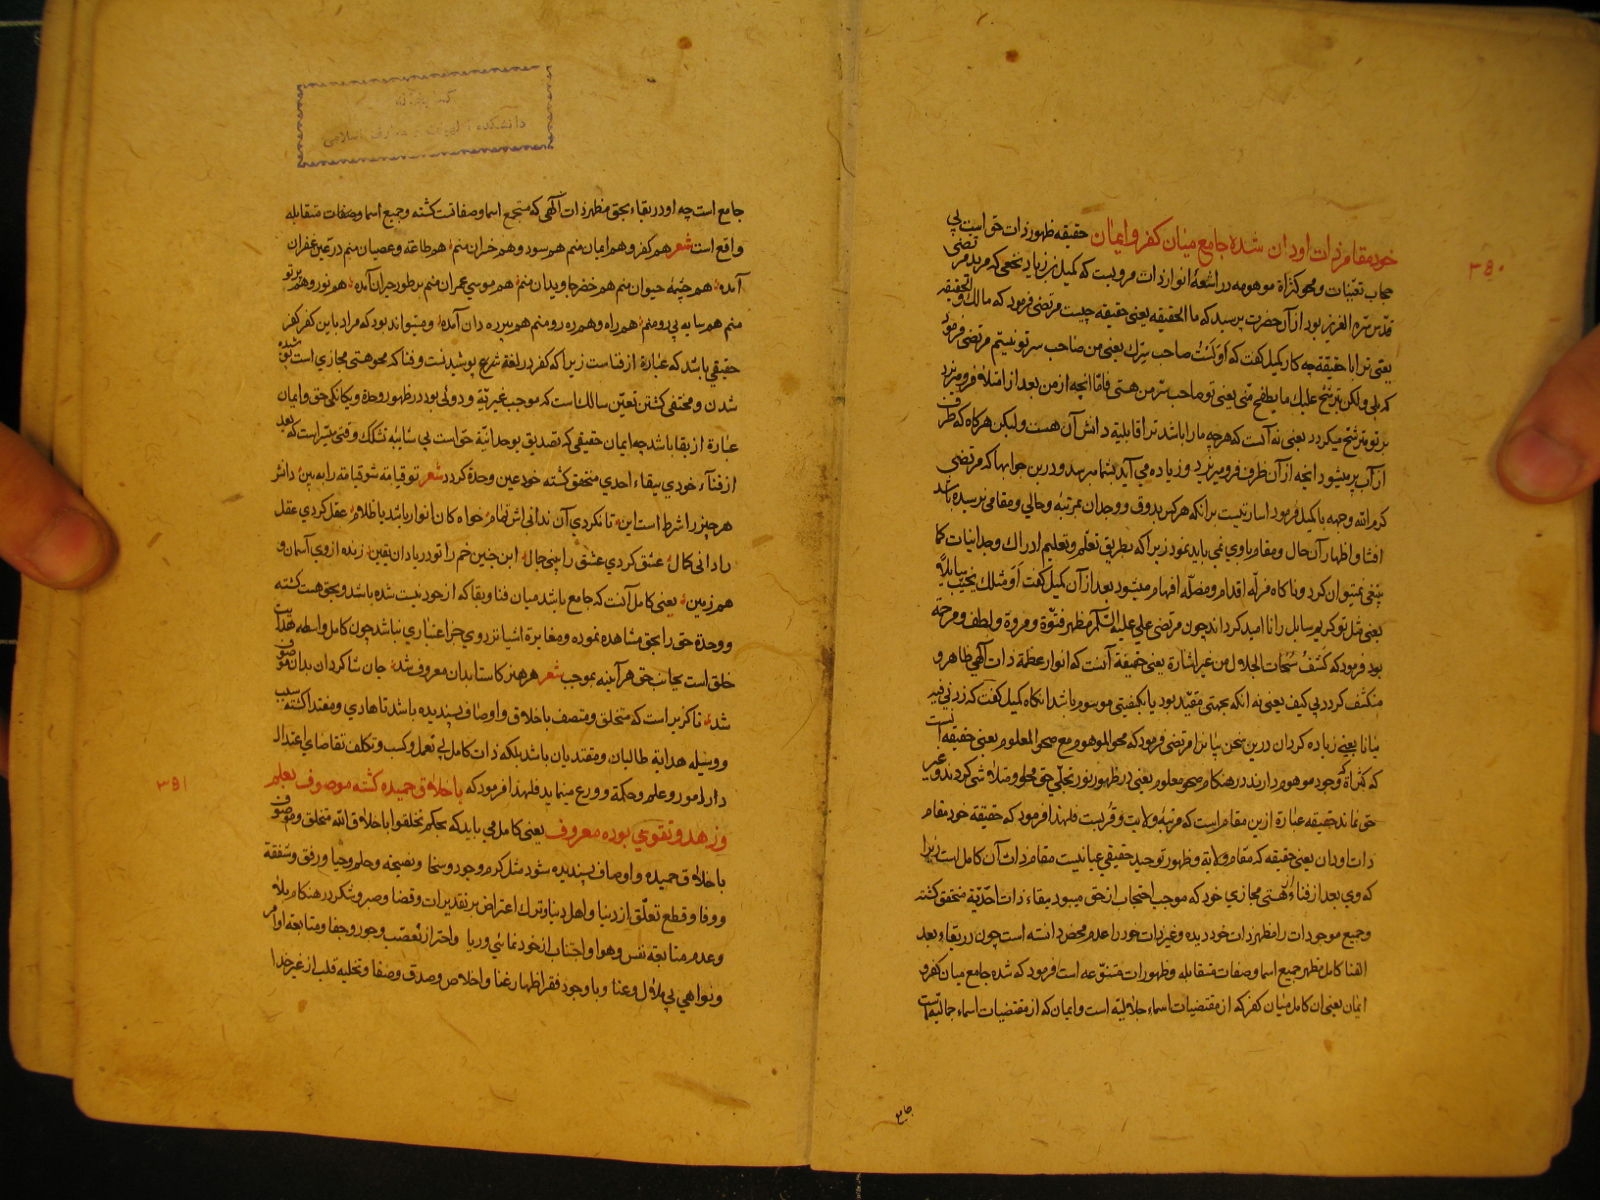 ۳۵۰
خود مقام ذات او دان شده جامع میان کفر و ایمان حقیقه ظهور ذات حق است بی
حجاب تعینات و محو کثرات موهومه در اشعهٔ انوار ذات مرویست که کمیل بن زیاد نخعی که مرید مرتضی
قدس سره العزیز بود از آن حضرت پرسید که ما الحقیقه یعنی حقیقه چیست مرتضی فرمود که مالک والحقیقه
یعنی ترا با حقیقه چه کار کمیل گفت که اولست صاحب سرک یعنی من صاحب سر تو نیستم مرتضی فرمود
که بلی ولکن یترشح علیک ما یطفح منی یعنی تو صاحب سر من هستی فاما آنچه از من بعد از امتلا فرو میریزد
بر تو مترشح میکردد یعنی نه آنست که هرچه مارا باشد ترا قابلیة دانش آن هست ولیکن هرکاه که ظرف
از آب پر میشود آنچه از آن ظرف فرو میریزد و زیاده می آید بشما میرسد و درین جوابها که مرتضی
کرم الله وجهه با کمیل فرمود اشارتیست برانکه هرکس بذوق و وجدان بمرتبه و حالی و مقامی نرسیده باشد
افشا و اظهار آن حال و مقام با وی نمی باید نمود زیرا که بطریق تعلم و تعلیم ادراک وجدانیات کما
ینبغی نمیتوان کرد و بناکاه مزله اقدام و مضله افهام میشود بعد از آن کمیل گفت او مثلک یخیب سایلا
یعنی مثل تو کریم سایل را ناامید کرداند چون مرتضی علی علیه السلام مظهر فتوة و مروة و لطف و مرحمة
بود فرمود که کشف سبحات الجلال من غیر اشارة یعنی حقیقة آنست که انوار عظمة ذات الهی ظاهر و
منکشف کردد بی کیف یعنی نه آنکه بجهتی مقید بود یا بکیفیتی موسوم باشد آنکاه کمیل گفت که زدنی فیه
بیانا یعنی زیاده کردان درین سخن بیان را مرتضی فرمود که محو الموهوم مع صحو المعلوم یعنی حقیقه آنست
که کثراة وجود موهوم دارند در هنکام صحو معلوم یعنی در ظهور نور تجلی حق محو و متلاشی کردند و غیر
حق نماند حقیقه عبارة ازین مقام است که مرتبه ولایت و قربست فلهذا فرمود که حقیقة خود مقام
ذات او دان یعنی حقیقه که مقام ولایة و ظهور توحید حقیقی عیانیست مقام ذات آن کامل است زیرا
که وی بعد از فنا و هستی مجازی خود که موجب احتجاب از حق میبود ببقاء ذات احدیة متحقق کشته
و جمیع موجودات را مظهر ذات خود دیده و غیر ذات خود را عدم محض دانسته است چون در بقاء بعد
الفنا کامل مظهر جمیع اسما و صفات متقابله و ظهورات متنوعه است فرمود که شده جامع میان کفر و
ایمان یعنی ان کامل میان کفر که از مقتضیات اسماء جلالیه است و ایمان که از مقتضیات اسماء جمالیه است
جامع
کتابخانه
دانشکده الهیات و معارف اسلامی
۳۵۱
جامع است چه او در بقاء بحق مظهر ذات الهی که مستجمع اسما و صفاتست کشته و جمیع اسما و صفات متقابله
واقع است شعر هم کفر و هم ایمان منم هم سود و هم خسران منم هم طاعة و عصیان منم در عین غفران
آمده هم چشمه حیوان منم هم خضر جاویدان منم هم موسی عمران منم بر طور حیران آمده هم نور و هم پرتو
منم هم سایه پی رو منم هم راه و هم ره رو منم هم پرده دان آمده و میتواند بود که مراد باین کفر کفر
حقیقی باشد که عبارة از فناست زیرا که کفر در لغة شرع پوشیدنست و فنا که محو هستی مجازی است پوشیده
شدن و مختفی کشتن تعین سالک است که موجب غیریة و دوئی بود در ظهور وحدة و یکانکی حق و ایمان
عبارة از بقا باشد چه ایمان حقیقی که تصدیق بوحدانیة حق است بی شائبه تشکک وقتی میسر است که بعد
از فناء خودی ببقاء احدی متحقق کشته خود عین وحدة کردد شعر تو قیامة شو قیامة را ببین دانش
هر چیز را شرط است این تا نکردی آن ندانی اش تمام خواه کان انوار باشد یا ظلام عقل کردی عقل
را دانی کمال عشق کردی عشق را بینی جمال این چنین خم را تو دریا دان یقین زنده از وی آسمان و
هم زمین یعنی کامل آنست که جامع باشد میان فنا و بقا که از خود نیست شده باشد و بحق هست کشته
و وحدة حق را بحق مشاهده نموده و مغایرة اشیا نزد وی جز اعتباری نباشد چون کامل واسطه هدایت
خلق است بجانب حق هرآینه بموجب شعر هر هنر کاستا بدان معروف شد جان شاکردان بدان موصوف
شد ناکزیر است که متخلق و متصف باخلاق و اوصاف پسندیده باشد تا هادی و مقتدا کشته سبب
و وسیله هدایة طالبان و مقتدیان باشد بلکه ذات کامل بی تعمل و کسب و تکلف تقاضای اعتدال
دارد امور و علم و حکمة و ورع مینماید فلهذا فرمود که باخلاق حمیده کشته موصوف بعلم
و زهد و تقوی بوده معروف یعنی کامل می باید که بحکم تخلقوا باخلاق الله متخلق و موصوف
باخلاق حمیده و اوصاف پسندیده شود مثل کرم وجود و سخا و نصیحة و حلم و حیا و رفق و شفقة
و وفا و قطع تعلق از دنیا و اهل دنیا و ترک اعتراض بر تقدیرات و قضا و صبر و شکر در هنکام بلا
و عدم متابعة نفس و هوا و اجتناب از خود نمائی و ریا و احتراز تعصب و جور و جفا و متابعة اوامر
و نواهی بی ملال و عنا و با وجود فقر اظهار غنا و اخلاص و صدق و صفا و تخلیه قلب از غیر خدا